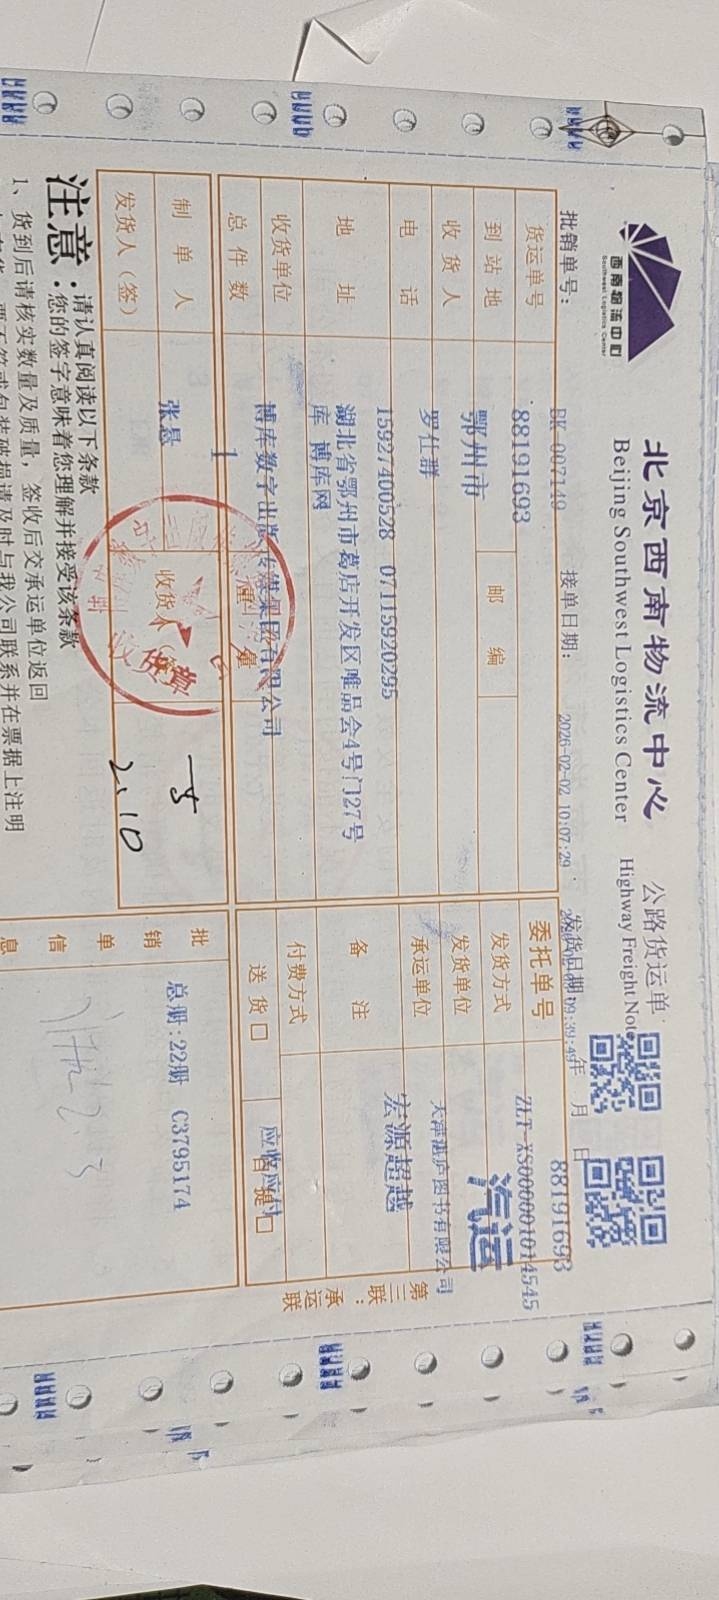 西南物流中心
Southwest Logistics Center
北京西南物流中心 公路货运单
Beijing Southwest Logistics Center Highway Freight Note
批销单号: BK-007149 接单日期: 2026-02-02 10:07:29 发货日期: 年 月 日
88191693
货运单号 88191693 委托单号 ZLT-XS00000101454​5
到站地 鄂州市 邮编 发货方式 汽运
收货人 罗仕群 发货单位 天津湛庐图书有限公司
电话 15927400528 07115920295 承运单位 宏源超越
地址 湖北省鄂州市葛店开发区唯品会4号门27号
库 博库网
备注
收货单位 博库数字出版传媒集团有限公司 付费方式
总件数 1 送货□ 自提□
应收应付
制单人 张悬 收货人
发货人(签)
收货章
2.10
批销单信息 总册:22册 C3795174
2.3
第三联:承运联
注意:请认真阅读以下条款
您的签字意味着您理解并接受该条款
1、货到后请核实数量及质量,签收后交承运单位返回
票不符或包装破损请及时与我公司联系并在票据上注明